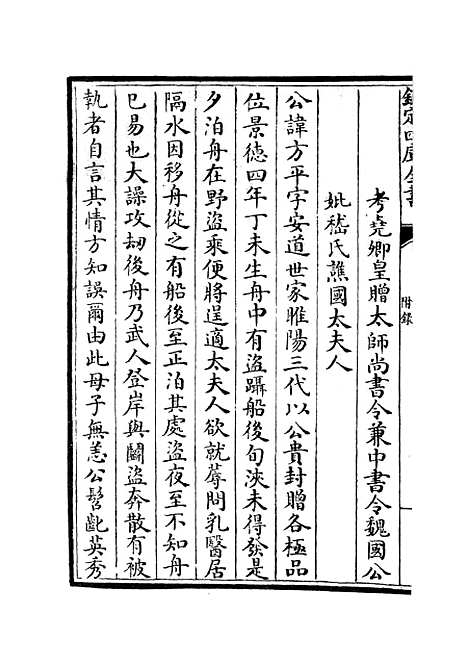 欽定四庫全書
附錄
考堯卿皇贈太師尚書令兼中書令魏國公
妣嵇氏譙國太夫人
公諱方平字安道世家睢陽三代以公貴封贈各極品
位景德四年丁未生舟中有盜躡船後旬浹未得發是
夕泊舟在野盜乘便將逞適太夫人欲就蓐問乳醫居
隔水因移舟從之有船後至正泊其處盜夜至不知舟
已易也大譟攻劫後舟乃武人登岸與鬭盜奔散有被
執者自言其情方知誤爾由此母子無恙公髫齔英秀